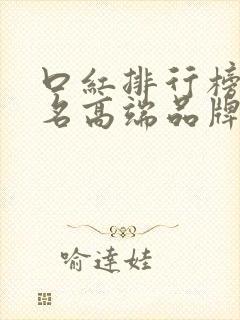 口红排行榜
名高端品牌
喻达娃